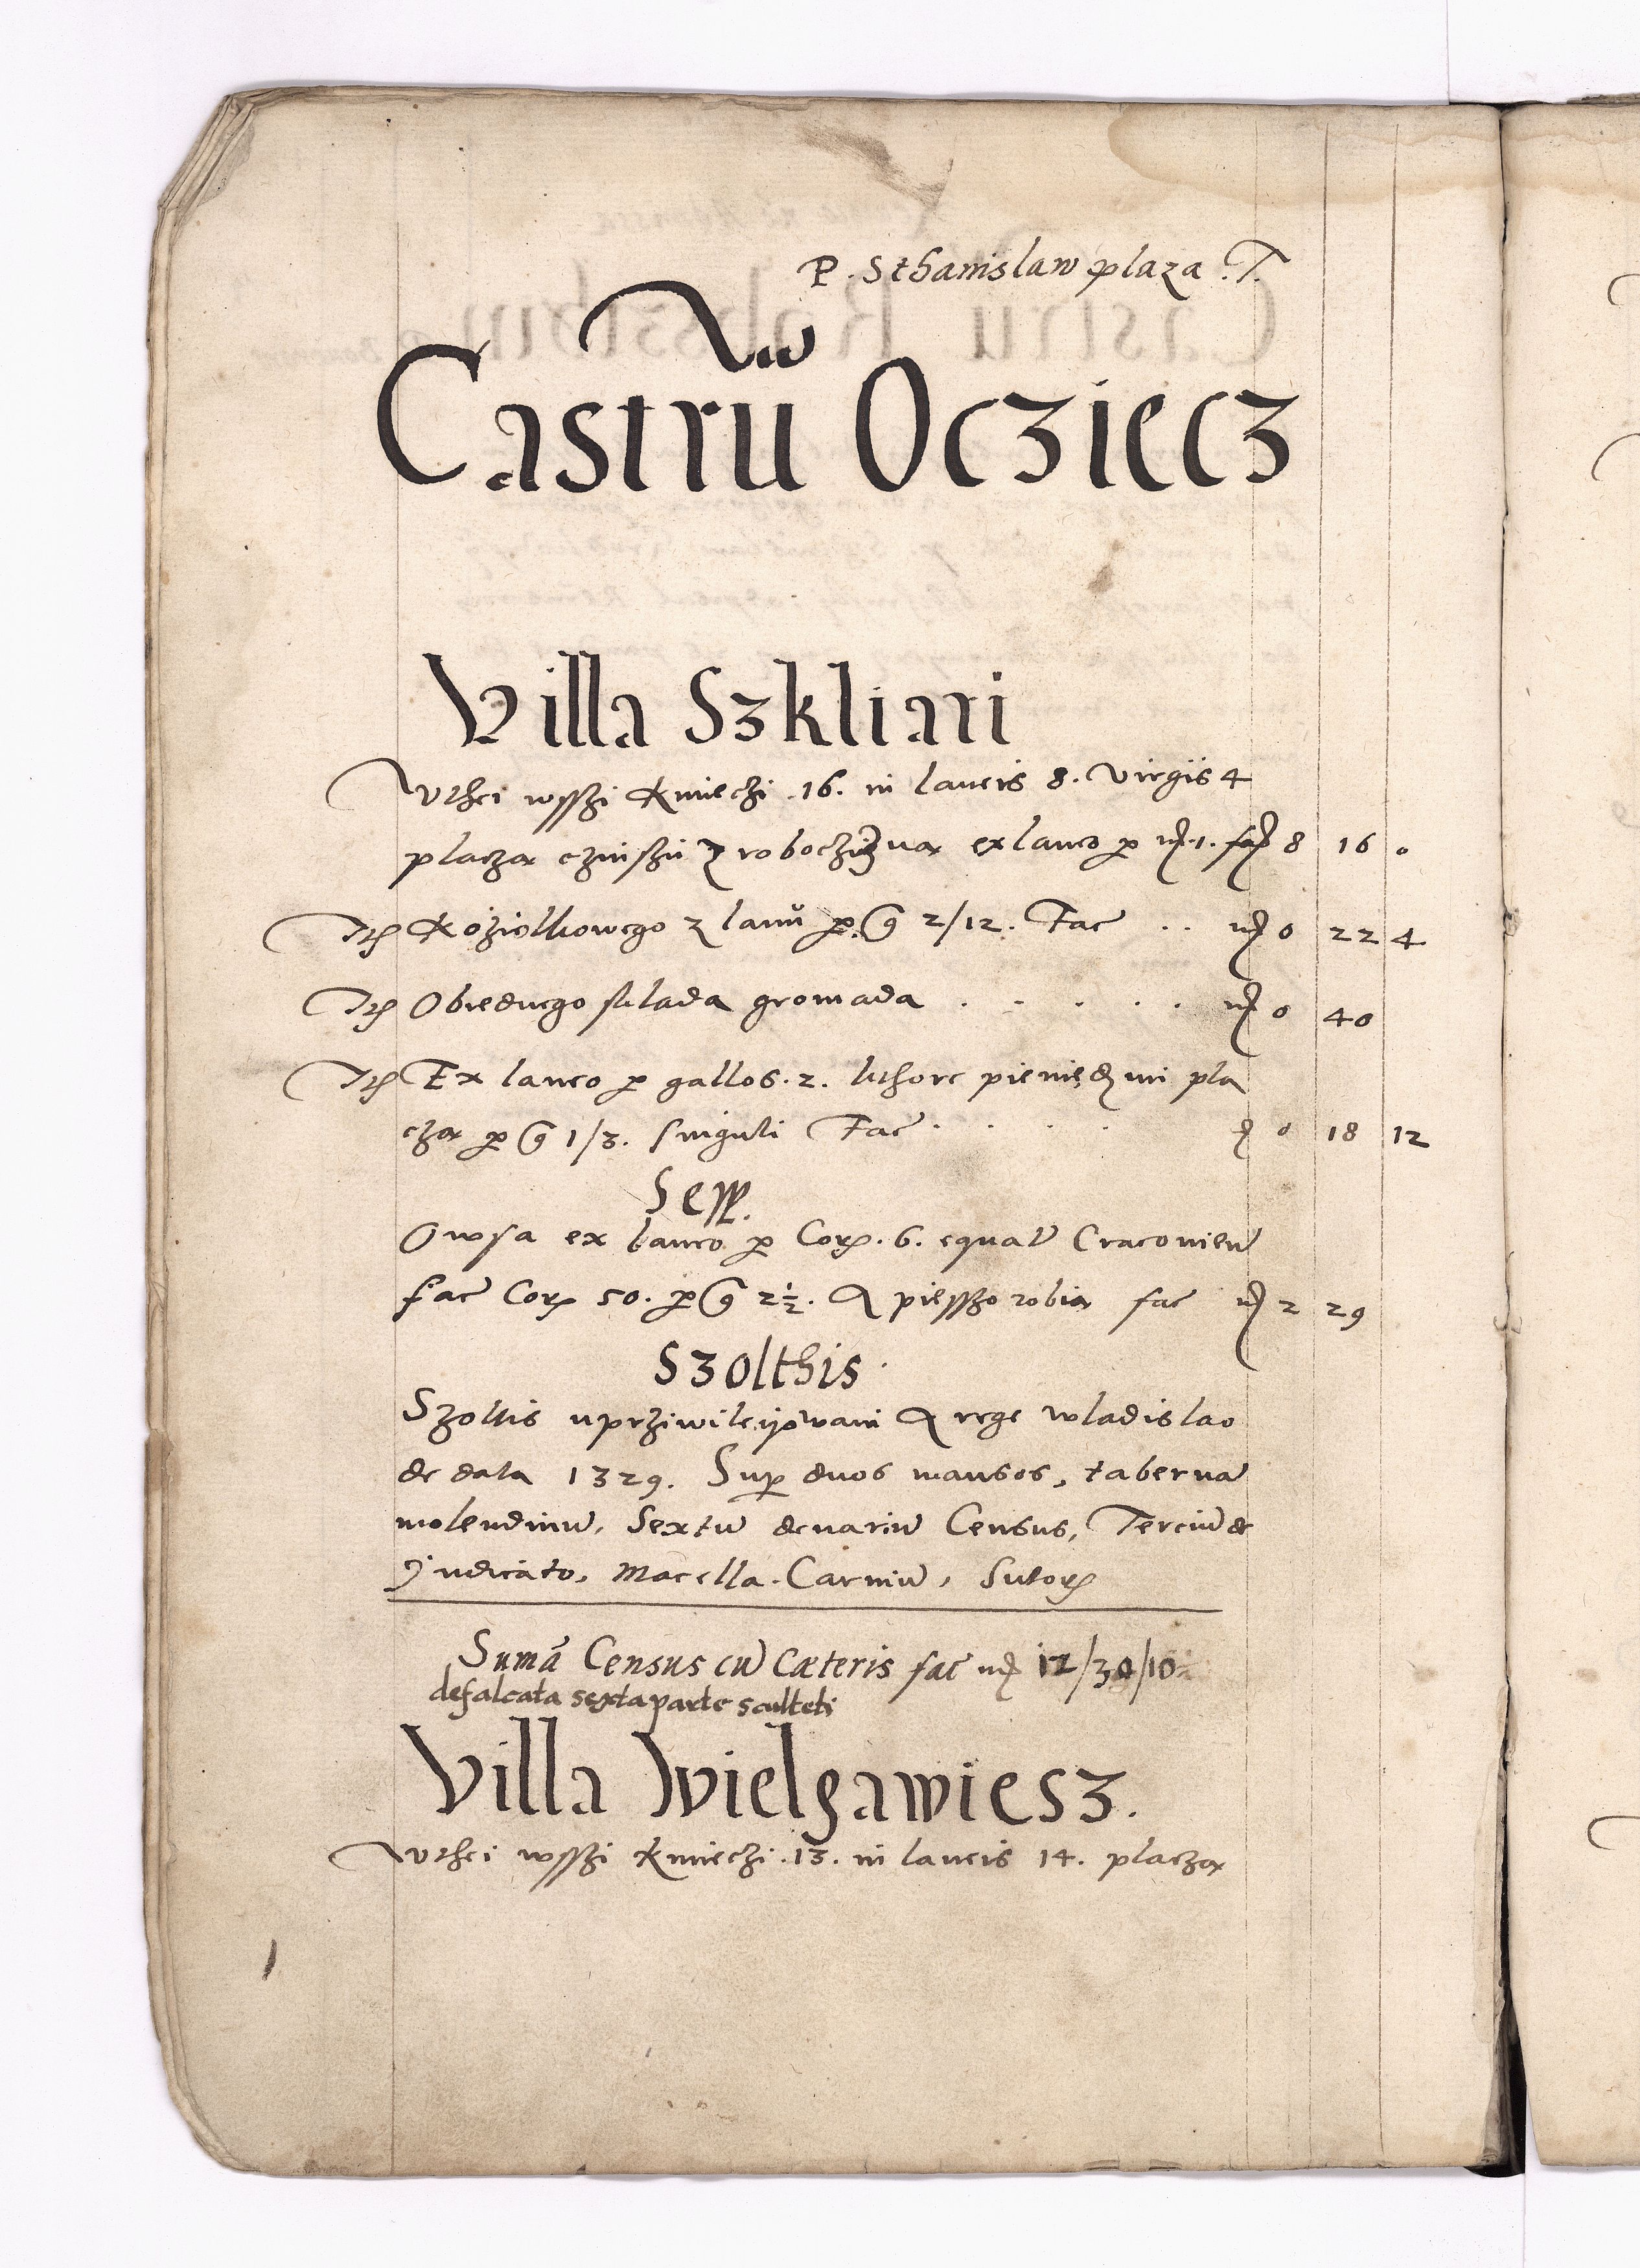 P. Sthanislaw plaza T.
Castrū Ocziecz
Villa Szkliari
W thei wsszi Kmieczi 16. in laneis 8. virgis 4
placzą czinszu z robocziznąą ex laneo p 1. fac 8 16 0
Koziolkowego z lanu p 2/12. Fac .. 0 22 4
Obiednego sklada gromada . . . . . 0 40
Ex laneo p gallos 2. kthore pieniędzmi pla
czą p 1/3. singuli Fac . . . . 0 18 12
Sepp.
Owsa ex laneo p Cor. 6. equal Cracovien
fac Cor 50. p 2½. A pieszo robią fac 2 29
Szolthis.
Szoltis uprziwileijowani A rege wladislao
de data 1329. Sup duos mansos, taberna
molendinu, Sextu denariu Census, Terciu de
Judicato, Macella Carniu, Sutor
Sumā Census cu Cæteris fac 12/38/10
defalcata sexta parte sculteti
Villa Wielgawiesz.
W thei wsszi Kmieczi 13. in laneis 14. placzą